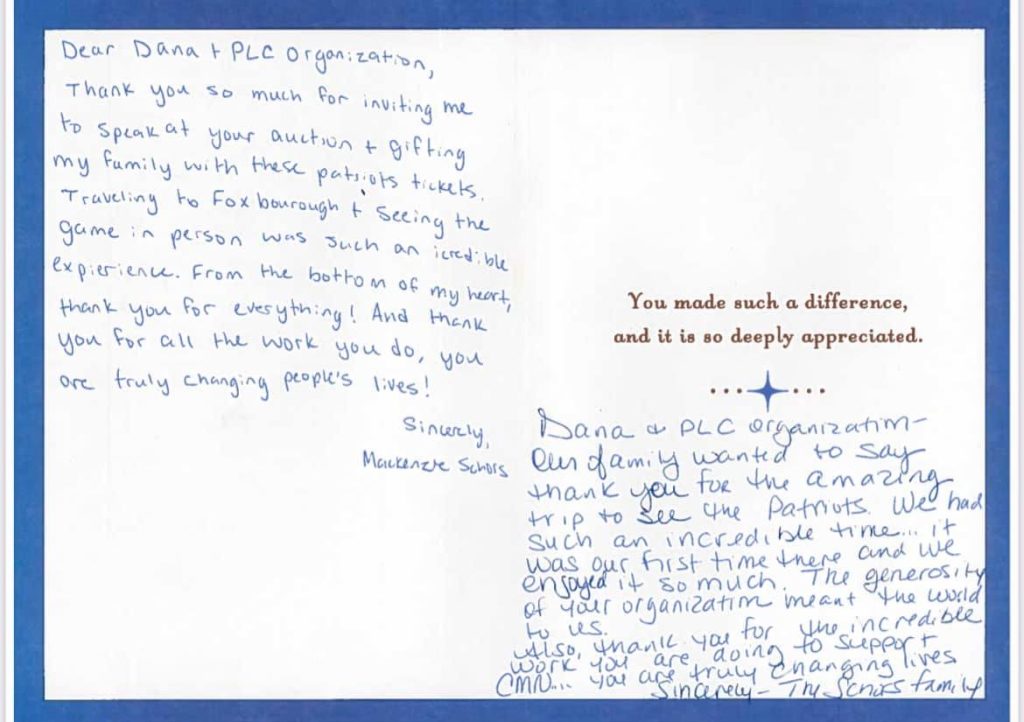 Dear Dana + PLC Organization,
Thank you so much for inviting me
to speak at your auction + gifting
my family with these patriots tickets.
Traveling to Foxbourough + seeing the
game in person was such an icredible
expierience. From the bottom of my heart,
thank you for everything! And thank
you for all the work you do, you
are truly changing people's lives!
Sincerly,
Mackenzie Schors
You made such a difference,
and it is so deeply appreciated.
Dana & PLC organization-
Our family wanted to say
thank you for the amazing
trip to see the Patriots. We had
such an incredible time... it
was our first time there and we
enjoyed it so much. The generosity
of your organization meant the world
to us.
Also, thank you for the incredible
work you are doing to support
CMN... you are truly changing lives
Sincerely- The Schors family